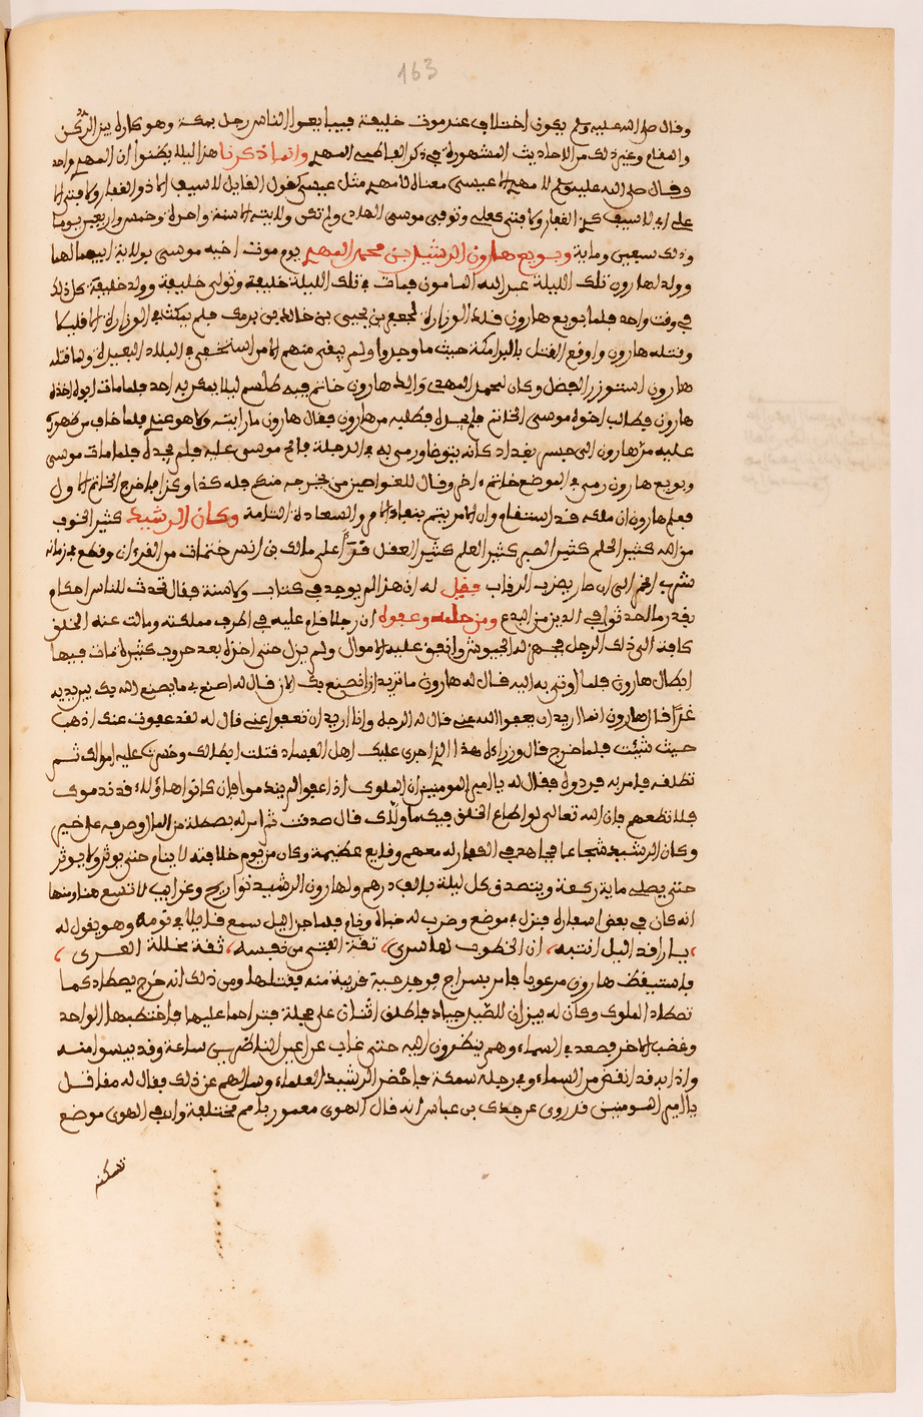 163
وقال صلى الله عليه وسلم يكون اختلاف عند موت خليفة فيبايعوا الناس رجل بمكة وهو كاره بين الركن
والمقام وغير ذلك من الاحاديث المشهورة في ذكر الفاطمي المهدي وانما ذكرنا هذا ليلا يظنوا ان المهدي واحد
وقال صلى الله عليه وسلم لا مهدي الا عيسى معناه لا مهدي مثل عيسى كقول القايل لا سيف الا ذو الفقار ولا فتى الا
علي اي لا سيف كذي الفقار ولا فتى كعلي وتوفي موسى الهادي ولم تكن ولايته الا سنة واحدة وخمس واربعين يوما
وذلك سبعين وماية وبويع هارون الرشيد بن محمد المهدي يوم موت اخيه موسى بولاية ابيهما لهما
وولد لهارون تلك الليلة عبد الله المامون فمات في تلك الليلة خليفة وتولى خليفة وولد خليفة كل ذلك
في وقت واحد فلما بويع هارون قلد الوزارة لجعفر بن يحيى بن خالد بن برمك فلم يمكث في الوزارة الا قليلا
وقتله هارون واوقع القتل بالبرامكة حيث ما وجدوا ولم يبقى منهم الا من استخفى في البلاد البعيدة ولما قتله
هارون استوزر الفضل وكان لمحمد المهدي والد هارون خاتم فيه طلسم ليلا يمكر به احد فلما مات ابوه اخذه
هارون فطالب اخوه موسى الخاتم فلم يجده فطلبه من هارون فقال هارون ما رايته ولا هو عندي فلما خاف من ظهوره
عليه مر هارون الى جسر بغداد كانه يتوضا ورمى به في الدجلة فالح موسى عليه فلم يجده فلما مات موسى
وبويع هارون رمى في الموضع خاتم اخر وقال للغواصين من يخرجه منكم فله كذا وكذا فاخرج الخاتم الاول
فعلم هارون ان ملكه قد استقام وان الامر يتم بتمام والسعادة التامة وكان الرشيد كثير الخوف
من الله كثير الحلم كثير الصبر كثير العلم كثير العقل قرا على مالك بن انس ختمات من القرءان وقطع في زمانه
شرب الخمر الى ان صار يضرب الرقاب فقيل له ان هذا لم يوجد في كتاب ولا سنة فقال تحدث للناس احكام
بقدر ما احدثوا في الدين من البدع ومن حلمه وعفوه ان رجلا قام عليه في اطرف مملكته ومالت عنه الخلق
كافة الى ذلك الرجل فجهز له الجيوش وانفق عليه الاموال ولم يزل حتى اخذه بعد حروب كثيرة مات فيها
ابطال هارون فلما اوتي به اليه قال له هارون ما تريد ان اصنع بك الان قال له اصنع بي ما يصنع الله بك بين يديه
غدا قال هارون انما اريد ان يعفوا الله عني قال له الرجل وانا اريد ان تعفوا عني قال له لقد عفوت عنك اذهب
حيث شئت فلما خرج قال وزراءه هذا الذي اجرى عليك اهل الفساد قتلت ابطالك وخسرت عليه اموالك ثم
تطلقه فامر به فردوه فقال له يا امير المومنين ان الملوك اذا عفوا لم يندموا فان كانوا هاؤلاء قد ندموك
فلا تطعهم فان الله تعالى لو اطاع الخلق فيك ما ولاك قال صدقت ثم امر له بصلة من المال وصرفه على خير
وكان الرشيد شجاعا مجاهد في الكفار له معهم وقايع عظيمة وكان من يوم خلافته لا ينام حتى يوتر ولا يوتر
حتى يصلي ماية ركعة ويتصدق كل ليلة بالف درهم ولهارون الرشيد تواريخ وغرايب لا تسع هنا ومنها
انه كان في بعض اسفاره فنزل في موضع وضرب له خباءه ونام فلما جن اليل سمع قايلا في نومه وهو يقول له
، يا راقد اليل انتبه ، ان الخطوب لها سرى ، ثقة الفتى من نفسه ، ثقة محللة العرى ،
فاستيقظ هارون مرعوبا فامر بسراج فوجد حية قريبة منه فقتلها ومن ذلك انه خرج يصطاد كما
تصطاد الملوك وكان له بيزان للصيد جياد فاطلق اثنان على حجلة فتراحما عليها فاختطبها الواحد
وغضب الاخر فصعد في السماء وهم ينظرون اليه حتى غاب عن اعين الناظرين ساعة وقد ييسوا منه
واذا به قد انقض من السماء وفي رجله سمكة فاحضر الرشيد العلماء وسالهم عن ذلك فقال له مقاتل
يا امير المومنين قد روي عن جدك بن عباس انه قال الهوى معمور بامم مختلفة وان في الهوى موضع
تسكنه